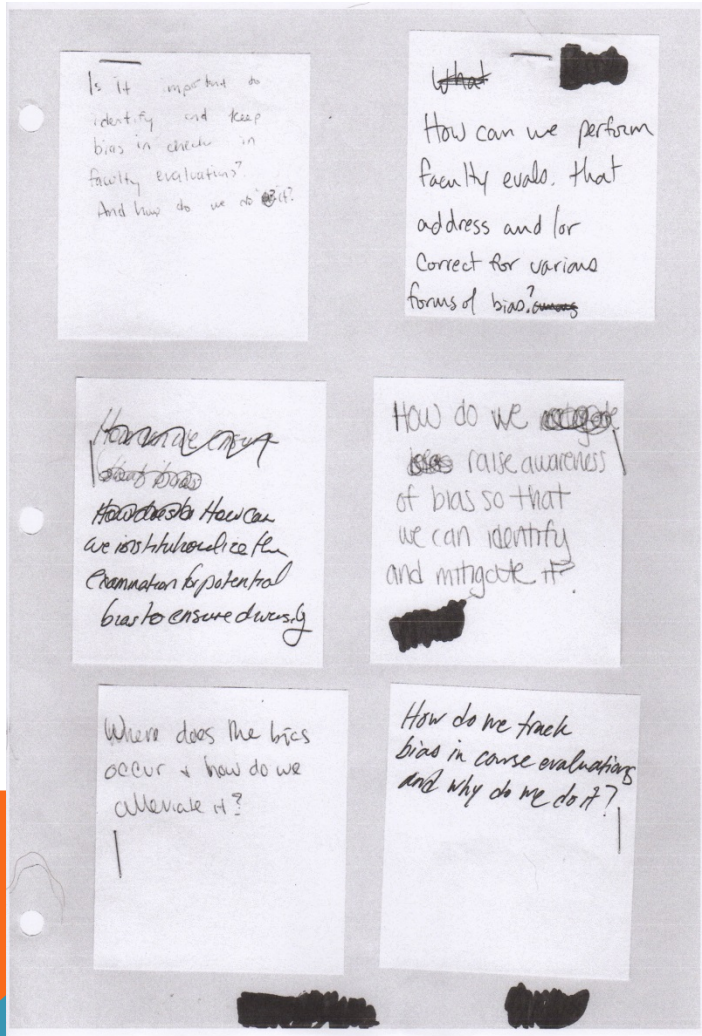 Is it important to
identify and keep
bias in check in
faculty evaluations?
And how do we do it?
What
How can we perform
faculty evals. that
address and/or
correct for various
forms of bias?
How can we ensure
How does b How can
we institutionalize the
examination for potential
bias to ensure diversity
How do we mitigate
bias raise awareness
of bias so that
we can identify
and mitigate it?
Where does the bias
occur & how do we
alleviate it?
How do we track
bias in course evaluations
and why do we do it?